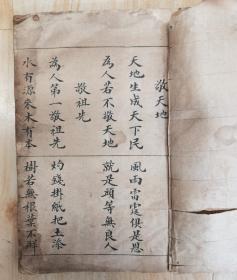 敬天地
天地生成天下民　風雨雷電俱是恩
為人若不敬天地　就是頑等無良人
敬祖先
為人第一敬祖先　灼錢掛紙把土添
水有源來木有本　樹若無根葉不鮮